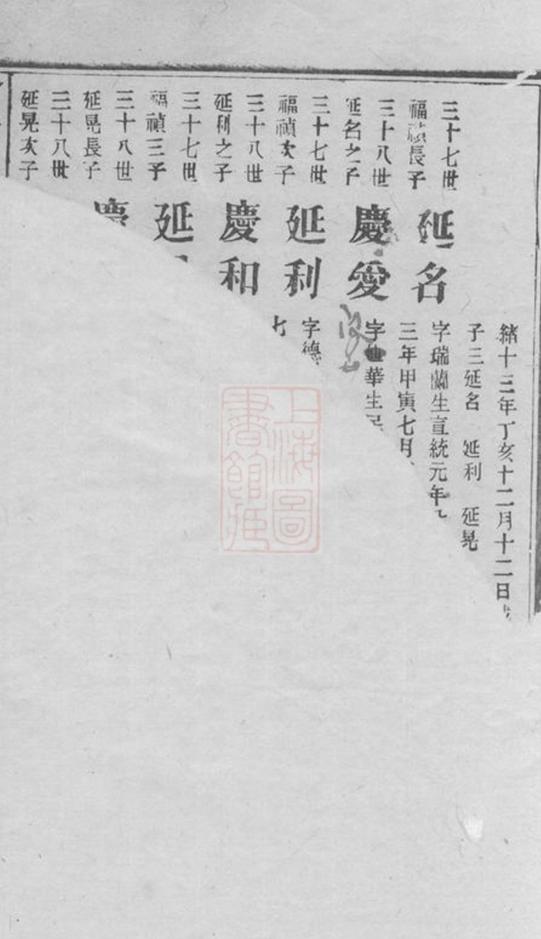 緒十三年丁亥十二月十二日
子三延名 延利 延晃
三十七世
福禎長子
延名
字瑞蘭生宣統元年
三年甲寅七月
三十八世
延名之子
慶愛
字華生民
三十七世
福禎次子
延利
字德
三十八世
延利之子
慶和
三十七世
福禎三子
延
三十八世
延晃長子
慶
三十八世
延晃次子
上海圖
書館藏